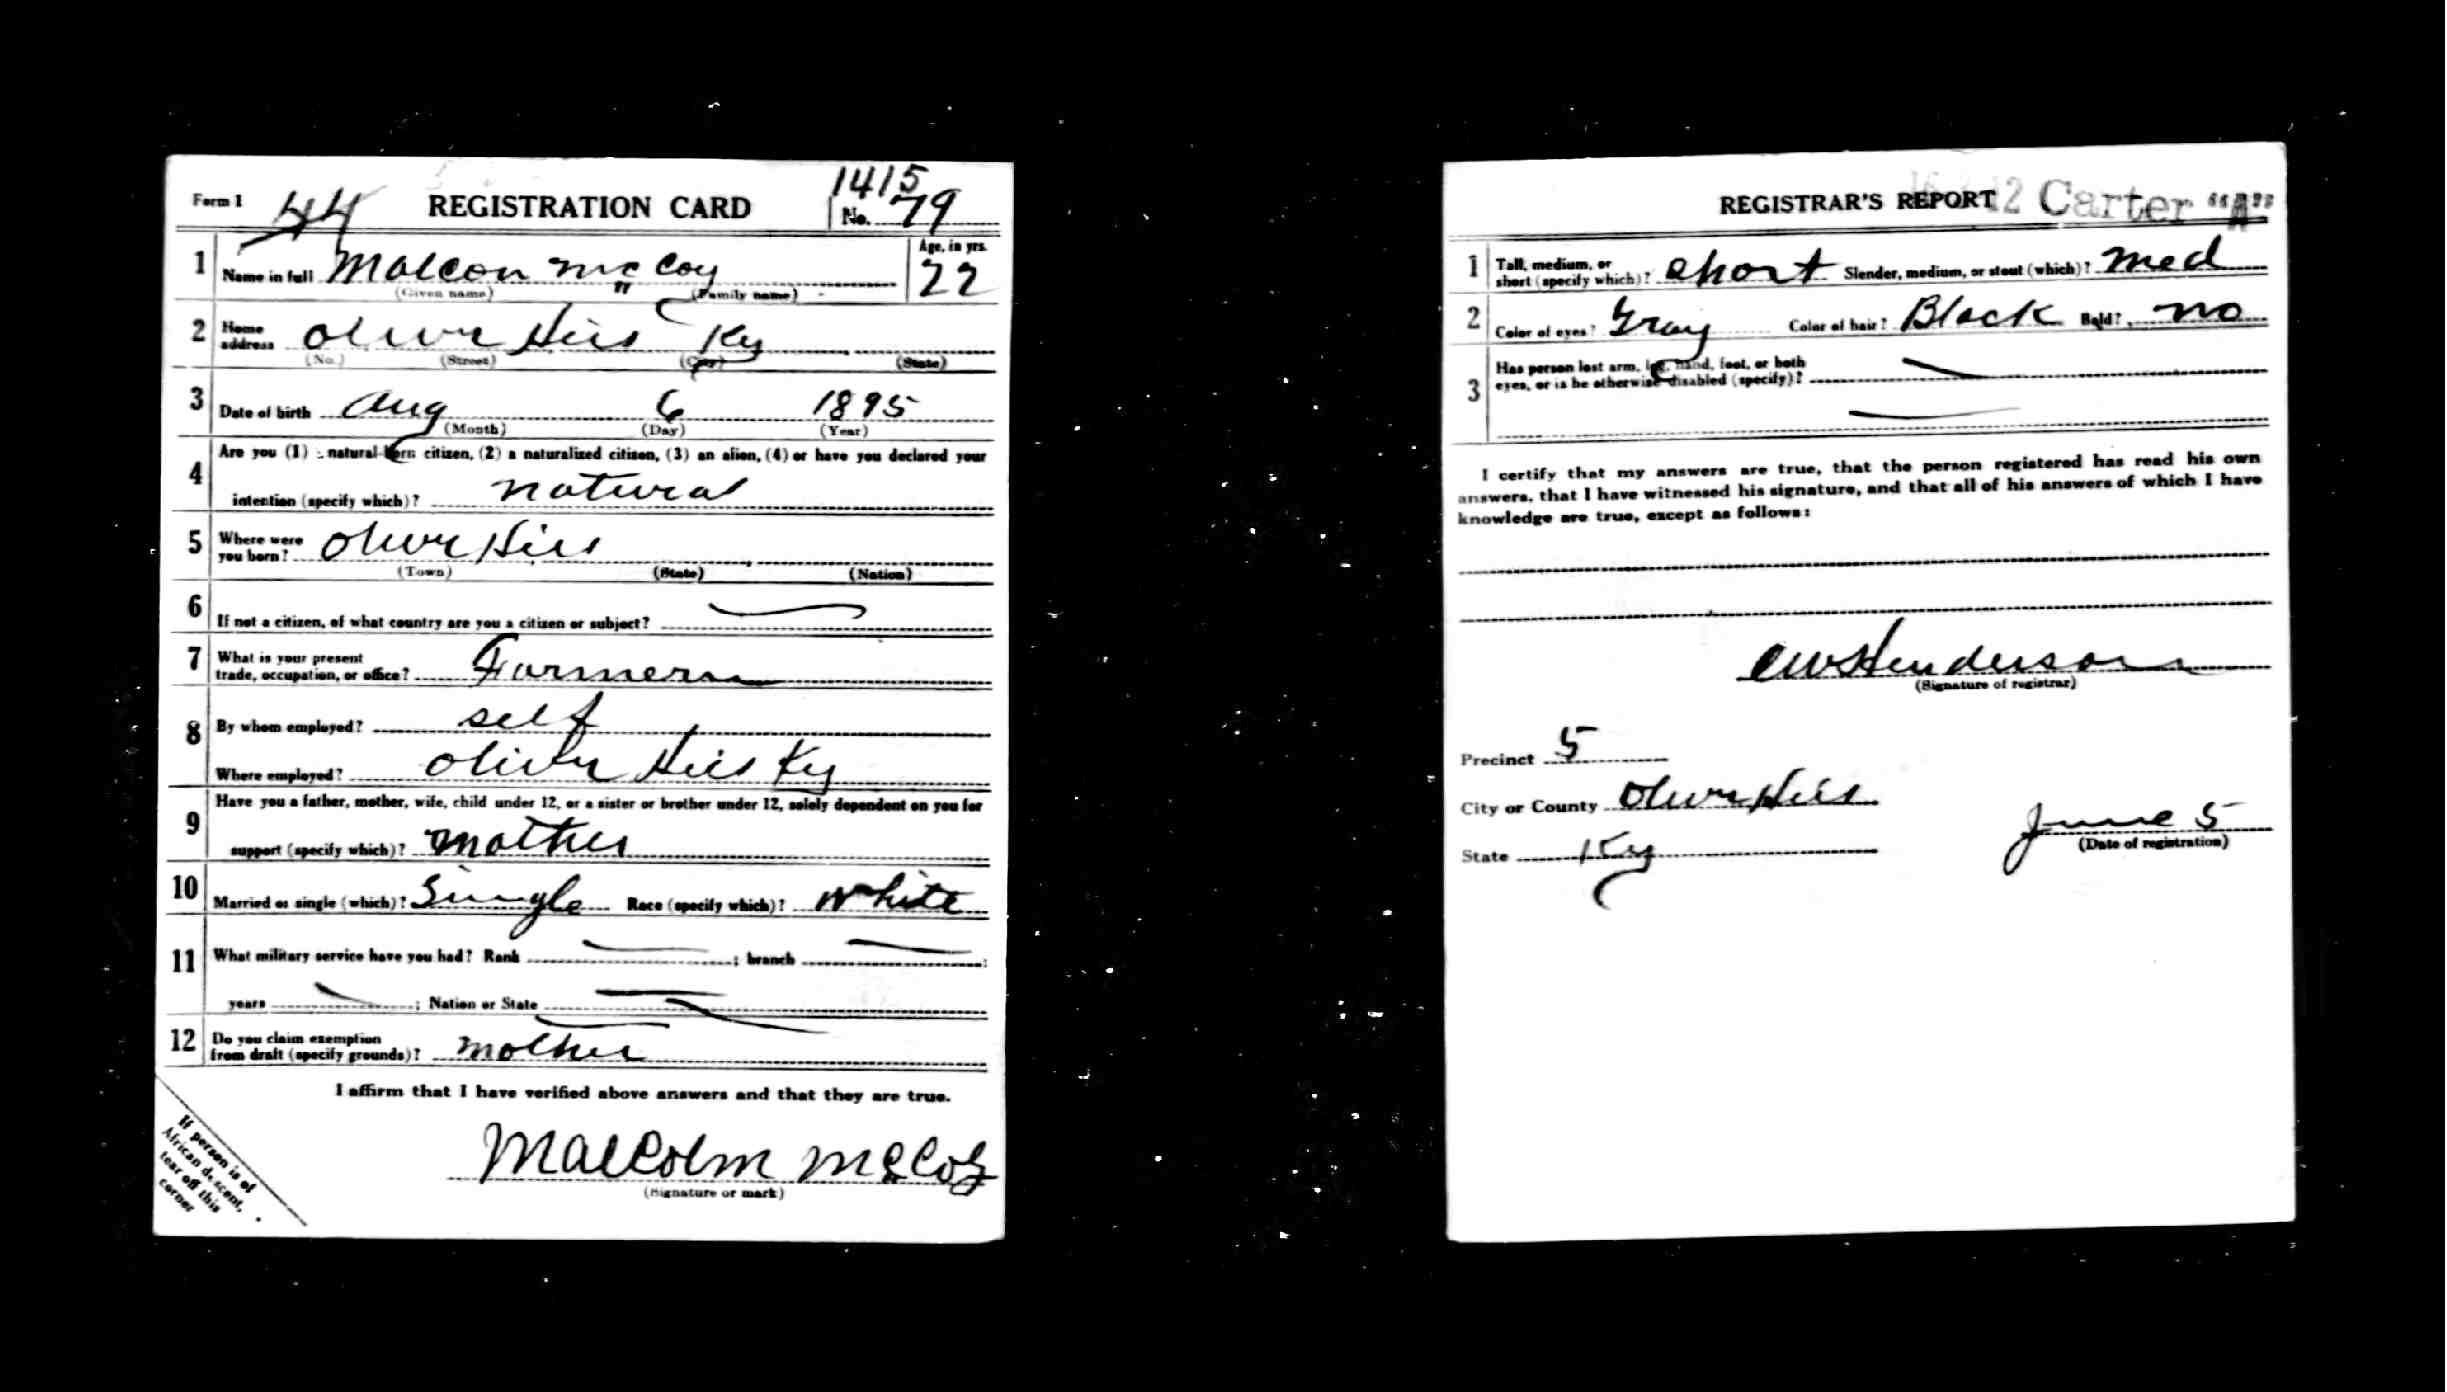 1415
Form 1 44 REGISTRATION CARD No. 79
1 Name in full Malcon McCoy Age, in yrs. 22
(Given name) (Family name)
2 Home address Olive Hill Ky
(No.) (Street) (City) (State)
3 Date of birth Aug 6 1895
(Month) (Day) (Year)
4 Are you (1) a natural-born citizen, (2) a naturalized citizen, (3) an alien, (4) or have you declared your
intention (specify which)? natural
5 Where were you born? Olive Hill
(Town) (State) (Nation)
6 If not a citizen, of what country are you a citizen or subject?
7 What is your present
trade, occupation, or office? Farmer
8 By whom employed? self
Where employed? Olive Hill Ky
9 Have you a father, mother, wife, child under 12, or a sister or brother under 12, solely dependent on you for
support (specify which)? mother
10 Married or single (which)? Single Race (specify which)? White
11 What military service have you had? Rank ; branch ;
years ; Nation or State
12 Do you claim exemption
from draft (specify grounds)? mother
I affirm that I have verified above answers and that they are true.
Malcolm McCoy
(Signature or mark)
If person is of
African descent,
tear off this
corner
REGISTRAR'S REPORT 12 Carter "A"
1 Tall, medium, or
short (specify which)? short Slender, medium, or stout (which)? med
2 Color of eyes? Gray Color of hair? Black Bald? no
3 Has person lost arm, leg, hand, foot, or both
eyes, or is he otherwise disabled (specify)?
I certify that my answers are true, that the person registered has read his own
answers, that I have witnessed his signature, and that all of his answers of which I have
knowledge are true, except as follows:
CW Henderson
(Signature of registrar)
Precinct 5
City or County Olive Hill
State Ky
June 5
(Date of registration)